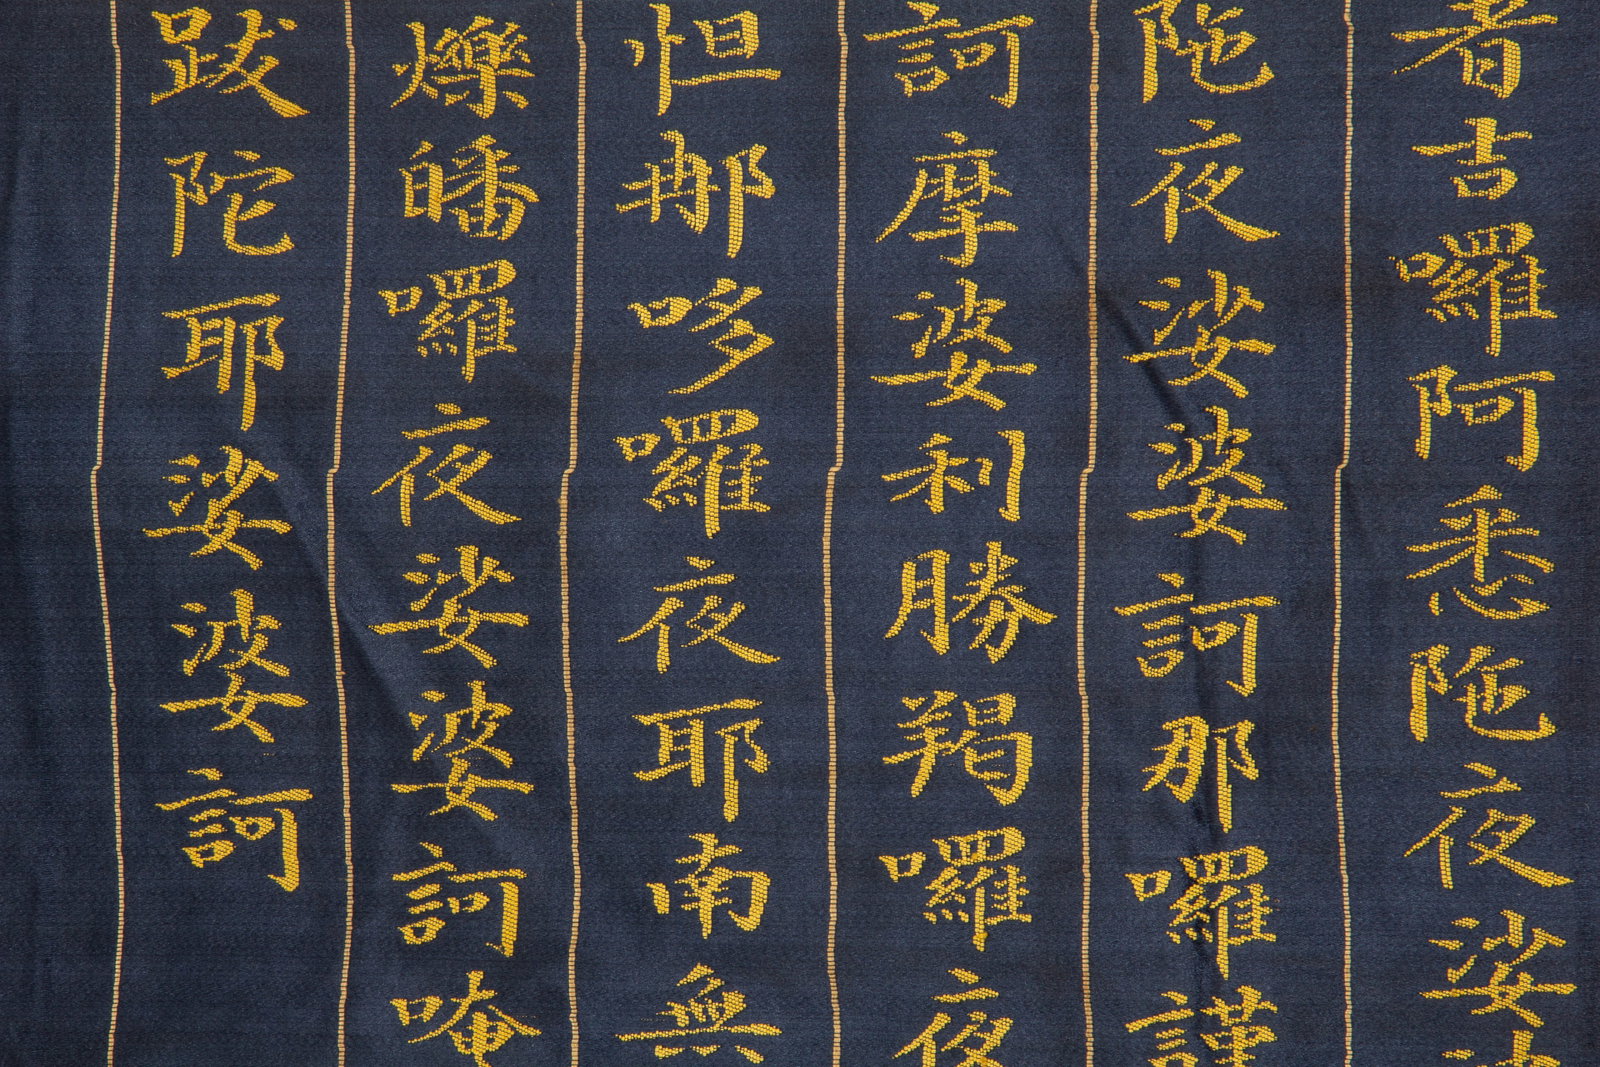 者吉囉阿悉陁夜娑
陁夜娑婆訶那囉謹
訶摩婆利勝羯囉夜
怛那哆囉夜耶南無
爍皤囉夜娑婆訶唵
跋陀耶娑婆訶